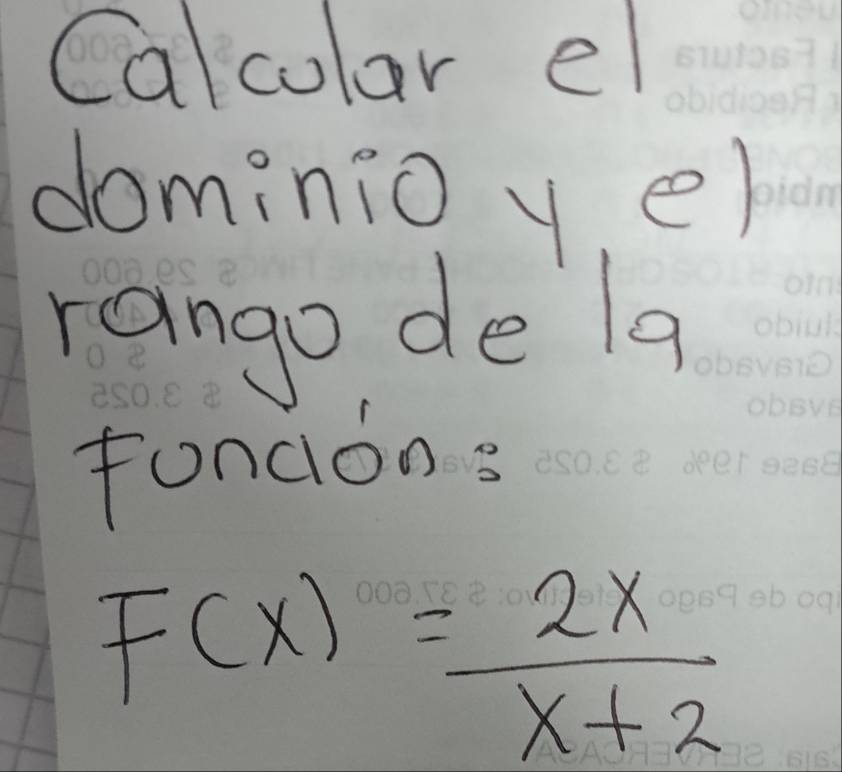 Calcular el
dominio y el
rango de la
Función:
F(x) = 2x / x+2